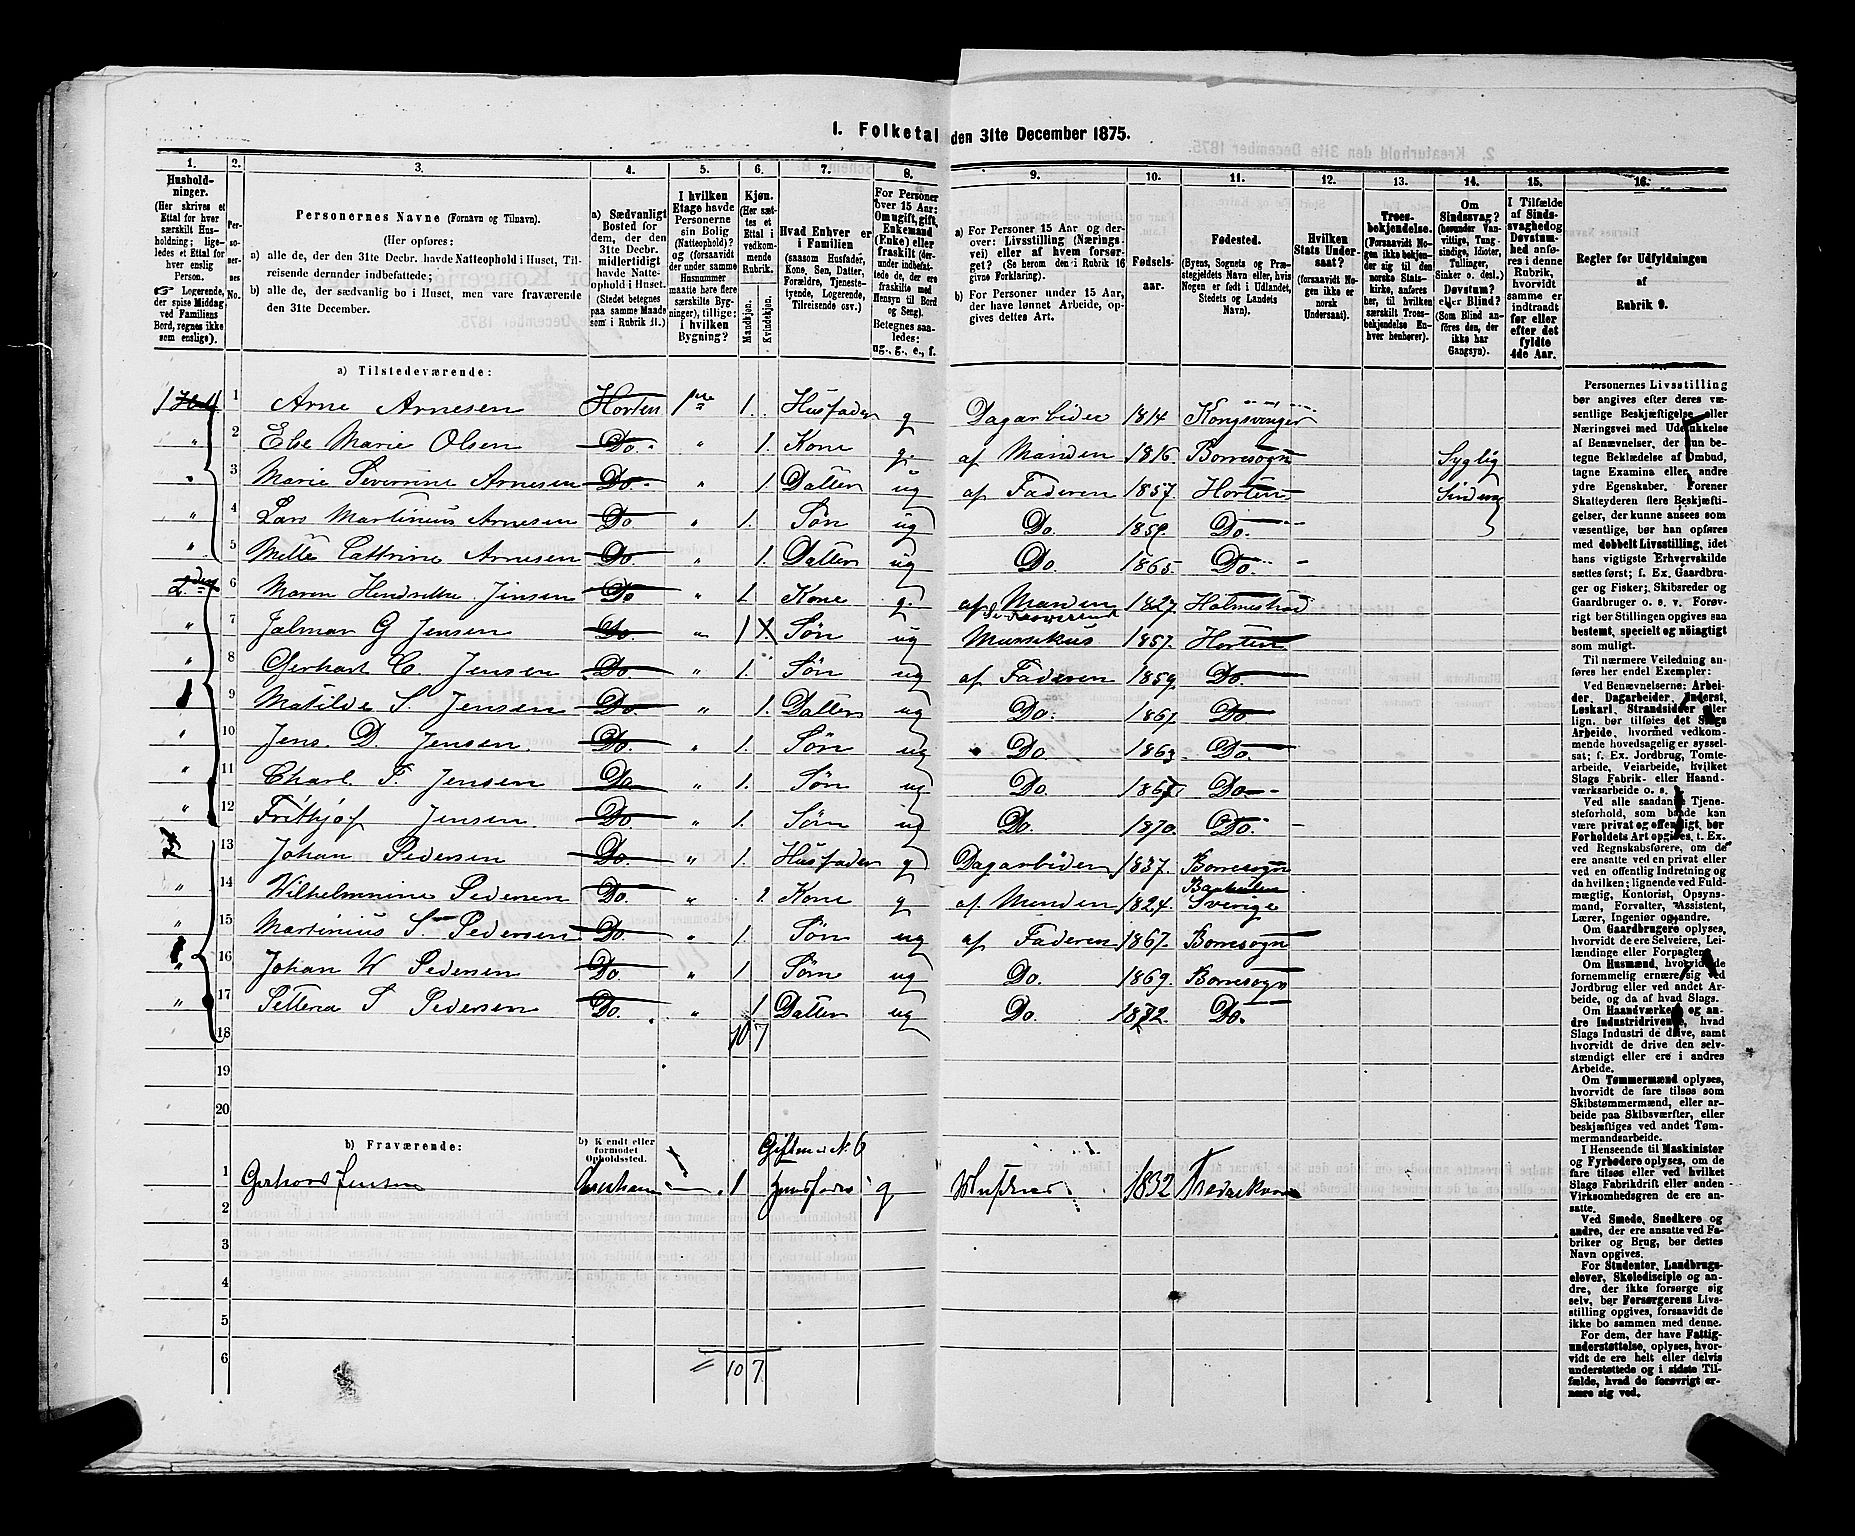 1. Folketal den 31te December 1875.
1. 2. 3. 4. 5. 6. 7. 8. 9. 10. 11. 12. 13. 14. 15. 16.
Husholdninger.
(Her skrives et
Ettal for hver
særskilt Husholdning; ligeledes
et Ettal for
hver enslig
Person.
☞ Logerende,
der spise Middag
ved Familiens
Bord, regnes ikke
som enslige).
Personernes No.
Personernes Navne (Fornavn og Tilnavn).
(Her opføres:
a) alle de, der den 31te Decbr. havde Natteophold i Huset, Tilreisende
derunder indbefattede;
b) alle de, der sædvanlig bo i Huset, men vare fraværende
den 31te December.
a) Sædvanligt
Bosted for
dem, der den
31te Decbr.
midlertidigt
havde Natteophold
i Huset.
(Stedet betegnes
paa samme Maade
som i Rubrik 11.)
I hvilken
Etage havde
Personerne
sin Bolig
(Natteophold)?
og (forsaavidt
der under samme
Husnummer
maatte høre flere
særskilte Bygninger),
tillige:
i hvilken
Bygning?
Kjøn.
(Her sættes
et
Ettal i
vedkommende
Rubrik.
Mandkjøn.
Kvindekjøn.
Hvad Enhver er
i Familien
(saasom Husfader,
Kone, Søn, Datter,
Forældre, Tjenestetyende,
Logerende,
Tilreisende osv.)
For Personer
over 15 Aar:
Om ugift, gift,
Enkemand
(Enke) eller
fraskilt (derunder
indbefattede
de, der ere
fraskilte med
Hensyn til Bord
og Seng).
Betegnes saaledes:
ug., g., e., f.
a) For Personer 15 Aar og derover:
Livsstilling (Næringsvei)
eller af hvem forsørget?
(Se herom den i Rubrik 16
givne Forklaring).
b) For Personer under 15 Aar,
der have lønnet Arbeide, opgives
dettes Art.
Fødselsaar.
Fødested.
(Byens, Sognets og Præstegjeldets
Navn eller, hvis
Nogen er født i Udlandet,
Stedets og Landets
Navn).
Hvilken
Stats Undersaat?
(forsaavidt Nogen
ikke er
norsk
Undersaat).
Troesbekjendelse.
(Forsaavidt Nogen
ikke bekjender
sig til den
norske Statskirke,
anføres
her, til hvilken
særskilt Troesbekjendelse
Enhver
henhører).
Om
Sindssvag?
(herunder Vanvittige,
Tungsindige,
Idioter,
Tullinger,
Sinker o. desl.)
Døvstum?
eller Blind?
(Som Blind anføres
den, der
ikke har
Gangsyn).
I Tilfælde
af Sindssvaghed
og
Døvstumhed
anføres i denne
Rubrik,
hvorvidt
samme er
indtraadt
før eller
efter det
fyldte
4de Aar.
Regler for Udfyldningen
af
Rubrik 9.
a) Tilstedeværende:
1 1 Arne Arnesen Horten 1ste 1. Husfader g Dagarbeider 1814 Kongsvinger
" 2 Else Marie Olsen Do. " 1. Kone g. af Manden 1816. Borresogn Syglig
" 3 Marie Severrine Arnesen Do. " 1 Datter ug af Faderen 1857. Horten
" 4 Lars Martinius Arnesen Do " 1. Søn ug Do. 1859. Do.
" 5 Mette Cattrine Arnesen Do. " 1. Datter ug Do. 1865. Do.
6 Maren Hendrikke Jensen Do " 1 Kone g. af Manden 1827. Holmestrand
" 7 Jalmar G Jensen Do. " 1 Søn ug Mussikus 1857. Horten
" 8 Gerhart C. Jensen Do. " 1. Søn ug af Faderen 1859. Do
9 Matilde S Jensen Do. " 1. Datter ug Do. 1861. Do
" 10 Jens. D. Jensen Do. " 1. Søn ug Do. 1863. Do.
" 11 Charl F. Jensen Do. " 1. Søn ug Do. 1867 Do
" 12 Frithjof Jensen Do. " 1. Søn ug Do. 1870. Do.
2 13 Johan Pedersen Do. " 1. Husfader g Dagarbeider 1837. Borresogn
" 14 Wilhelmnine Pedersen Do. " 1. Kone g af Manden 1824. Sverige
" 15 Martinius S Pedersen Do. " 1. Søn ug af Faderen 1867. Borresogn
" 16 Johan W Pedersen Do. " 1. Søn ug Do. 1869. Borresogn
" 17 S Pedersen Do. " 1 Datter ug Do. 1872. Do.
18 10 7
19
20
b) Fraværende: b) Kendt eller formodet Opholdssted. Gift med N. 6
1 Jensen 1 Husfader g 1832
2
3
4
5
6 10 7
Personernes Livsstilling
bør angives efter deres væsentlige
Beskjæftigelse eller
Næringsvei med Udelukkelse
af Benævnelser, der kun betegne
Beklædelse af Ombud,
tagne Examina eller andre
ydre Egenskaber. Forener
Skatteyderen flere Beskjæftigelser,
der kunne ansees som
væsentlige, bør han opføres
med dobbelt Livsstilling, idet
hans vigtigste Erhvervskilde
sættes først; f. Ex. Gaardbruger
og Fisker; Skibsreder og
Gaardbruger o. s. v. Forøvrigt
bør Stillingen opgives saa
bestemt, specielt og nøiagtigt
som muligt.
Til nærmere Veiledning anføres
her endel Exempler:
Ved Benævnelserne: Arbeider,
Dagarbeider, Inderst,
Løskarl, Strandsidder eller
lign. bør tilføies det Slags
Arbeide, hvormed vedkommende
hovedsagelig er sysselsat;
f. Ex. Jordbrug, Tomtearbeide,
Veiarbeide, hvilket
Slags Fabrik- eller Haandværksarbeide
o. s. v.
Ved alle saadanne Tjenesteforhold,
som baade kan
være privat og offentligt, bør
Forholdets Art opgives, t. Ex.
ved Regnskabsførere, om de
ere ansatte ved en privat eller
ved en offentlig Indretning og
da hvilken; lignende ved Fuldmægtig,
Kontorist, Opsynsmand,
Forvalter, Assistent,
Lærer, Ingeniør og andre.
Om Gaardbrugere oplyses,
hvorvidt de ere Selveiere, Leilændinge
eller Forpagtere.
Om Husmænd, hvorvidt de
fornemmelig ernære sig ved
Jordbrug eller ved andet Arbeide,
og da af hvad Slags.
Om Haandværkere og andre
Industridrivende, hvad
Slags Industri de drive, samt
hvorvidt de drive den selvstændigt
eller ere i andres
Arbeide.
Om Tømmermænd oplyses,
hvorvidt de fare tilsøs som
Skibstømmermænd, eller arbeide
paa Skibsværfter, eller
beskjæftiges ved andet Tømmermandsarbeide.
I Henseende til Maskinister
og Fyrbødere oplyses, om de
fare tilsøs eller ved hvilket
Slags Fabrikdrift eller anden
Virksomhedsgren de ere ansatte.
Ved Smede, Snedkere og
andre, der ere ansatte ved Fabriker
og Brug, bør dettes
Navn opgives.
For Studenter, Landbrugselever,
Skoledisciple og andre,
der ikke forsørge sig
selv, bør Forsørgerens Livsstilling
opgives, forsaavidt de
ikke bo sammen med denne.
For dem, der have Fattigunderstøttelse,
oplyses, hvorvidt
de ere helt eller delvis
understøttede og i sidste Tilfælde,
hvad de forøvrigt ernære
sig ved.